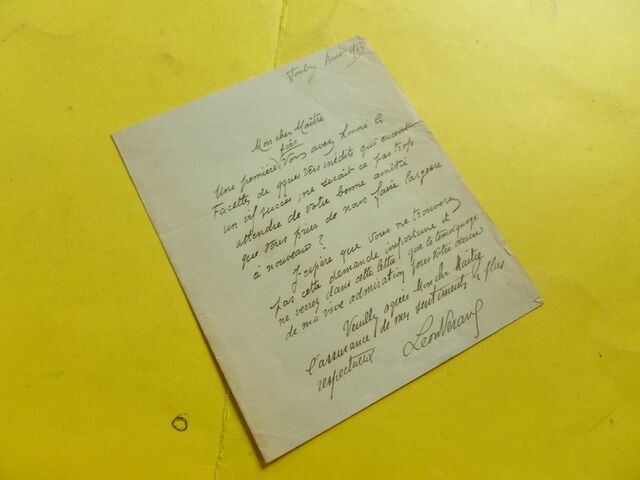 Toulon
Mon cher Maître
Une première fois Vous avez honoré les
Facettes de qques vers inédits qui eurent
un vif succès, ne serait ce pas trop
attendre de votre bonne amitié
que vous prier de nous faire largesse
à nouveau ?
J'espère que vous ne trouverez
pas cette demande importune et
ne verrez dans cette lettre que le témoignage
de ma vive admiration pour votre œuvre
Veuillez agréer Mon cher Maître
l'assurance de mes sentiments les plus
respectueux
Léon Vérane